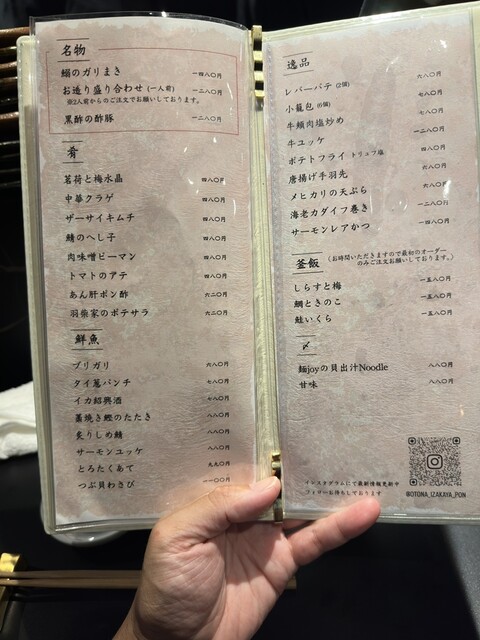 名物
鰯のガリまき 一四八〇円
お造り盛り合わせ（一人前） 一二八〇円
※2人前からのご注文でお願いしております。
黒酢の酢豚 一二八〇円
肴
茗荷と梅水晶 四八〇円
中華クラゲ 四八〇円
ザーサイキムチ 四八〇円
鯖のへし子 四八〇円
肉味噌ピーマン 四八〇円
トマトのアテ 四八〇円
あん肝ポン酢 六二〇円
羽柴家のポテサラ 六二〇円
鮮魚
ブリガリ 六八〇円
タイ葱パンチ 七八〇円
イカ紹興酒 七八〇円
藁焼き鰹のたたき 八八〇円
炙りしめ鯖 八八〇円
サーモンユッケ 八八〇円
とろたくあて 九九〇円
つぶ貝わさび 一一〇〇円
逸品
レバーパテ（2個） 六八〇円
小籠包（6個） 七八〇円
牛頬肉塩炒め 七八〇円
牛ユッケ 一二八〇円
ポテトフライ トリュフ塩 六八〇円
唐揚げ手羽先 六八〇円
メヒカリの天ぷら 八八〇円
海老カダイフ巻き 一二八〇円
サーモンレアかつ 一四八〇円
釜飯（お時間いただきますので最初のオーダー
のみご注文お願いしております。）
しらすと梅 一五八〇円
鯛ときのこ 一五八〇円
鮭いくら 一五八〇円
〆
麺joyの貝出汁Noodle 八八〇円
甘味 八八〇円
インスタグラムにて最新情報更新中
フォローお待ちしております
@OTONA_IZAKAYA_PON